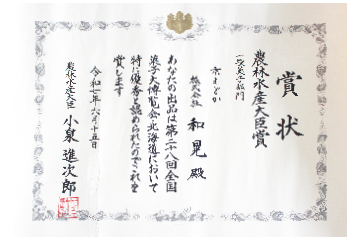 賞状
農林水産大臣賞
一般菓子部門
京まどか
株式会社 和晃 殿
あなたの出品は第二十八回全国
菓子大博覧会・北海道において
特に優秀と認められたのでこれを
賞します
令和七年六月十五日
農林水産大臣 小泉進次郎